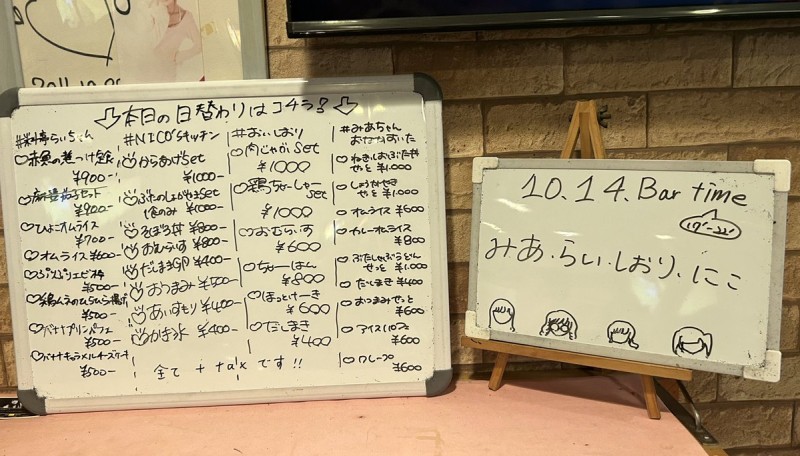 2011.10.09
⇩本日の日替わりはコチラ!⇩
#料亭らいちゃん
♡赤魚の煮つけ定食
¥900-
♡麻婆茄子セット
¥900-
♡ひよこオムライス
¥700-
♡オムライス ¥600-
♡ぷりぷりエビ
¥500-
♡鶏ムネのひらひら揚げ
¥500-
♡バナナプリンパフェ
¥500-
♡バナナキャラメルチーズケーキ
¥500-
#NICO'Sキッチン
からあげset
¥1000-
ぶたのしょうがやきset
¥1000-
そぼろ丼 ¥800-
おむらいす ¥800-
だしまき卵 ¥400-
おつまみ ¥500-
あいすもり ¥400-
かき氷 ¥400-
#おいしおり
♡肉じゃがset
¥1000
♡鶏ちゃーしゅーset
¥1000
♡おむらいす
¥600
♡ちゃーはん
¥800
♡ほっとけーき
¥600
♡だしまき
¥400
#みあちゃん
おなかすいた
ねぎしおぶた丼
せっと ¥1,000
しょうがやき
せっと ¥1,000
オムライス ¥600
カレーオムライス
¥800
ぶたしゃぶうどん
せっと ¥1,000
だしまき ¥400
おつまみせっと
¥600
アイスパフェ
¥600
クレープ
¥600
全て + tax です!!
10.14. Bar time
みあ.らい.しおり.にこ